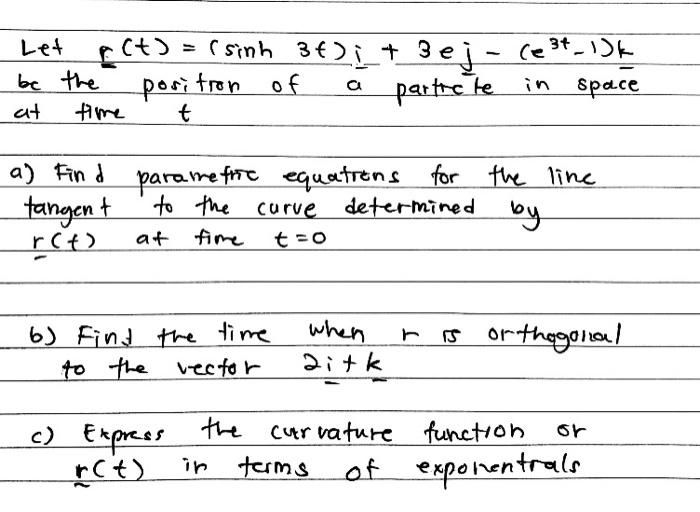 Let r(t) = (sinh 3t)i + 3ej - (e^3t - 1)k
be the position of a particle in space
at time t
a) Find parametric equations for the line
tangent to the curve determined by
r(t) at time t=0
b) Find the time when r is orthogonal
to the vector 2i + k
c) Express the curvature function or
r(t) in terms of exponentials